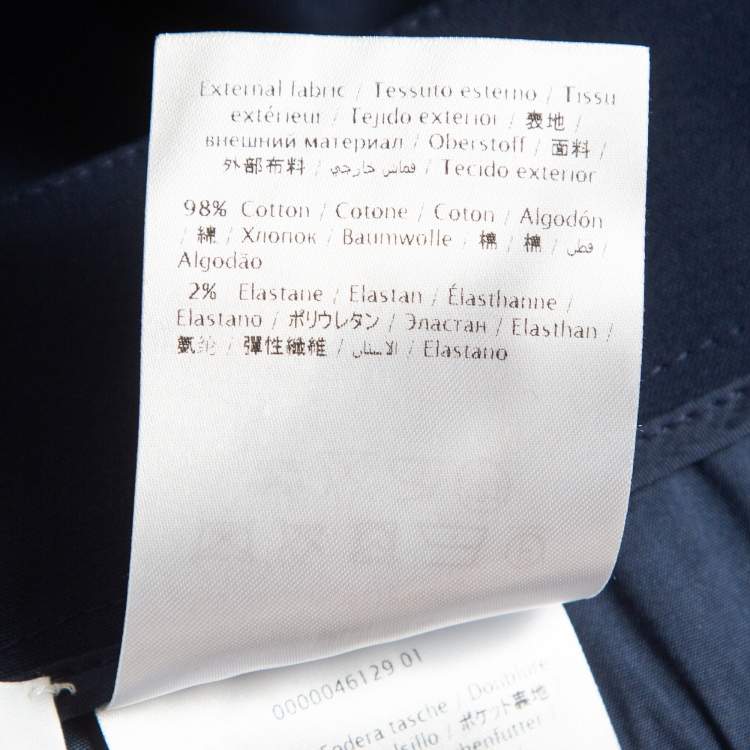 External fabric / Tessuto esterno / Tissu
extérieur / Tejido exterior / 表地 /
внешний материал / Oberstoff / 面料 /
外部布料 / قماش خارجي / Tecido exterior
98% Cotton / Cotone / Coton / Algodón
/ 綿 / Хлопок / Baumwolle / 棉 / 棉 / قطن /
Algodão
2% Elastane / Elastan / Élasthanne /
Elastano / ポリウレタン / Эластан / Elasthan /
氨纶 / 彈性纖維 / الاستان / Elastano
0000046129 01
Fodera tasche / Doublure
/ ポケット裏地